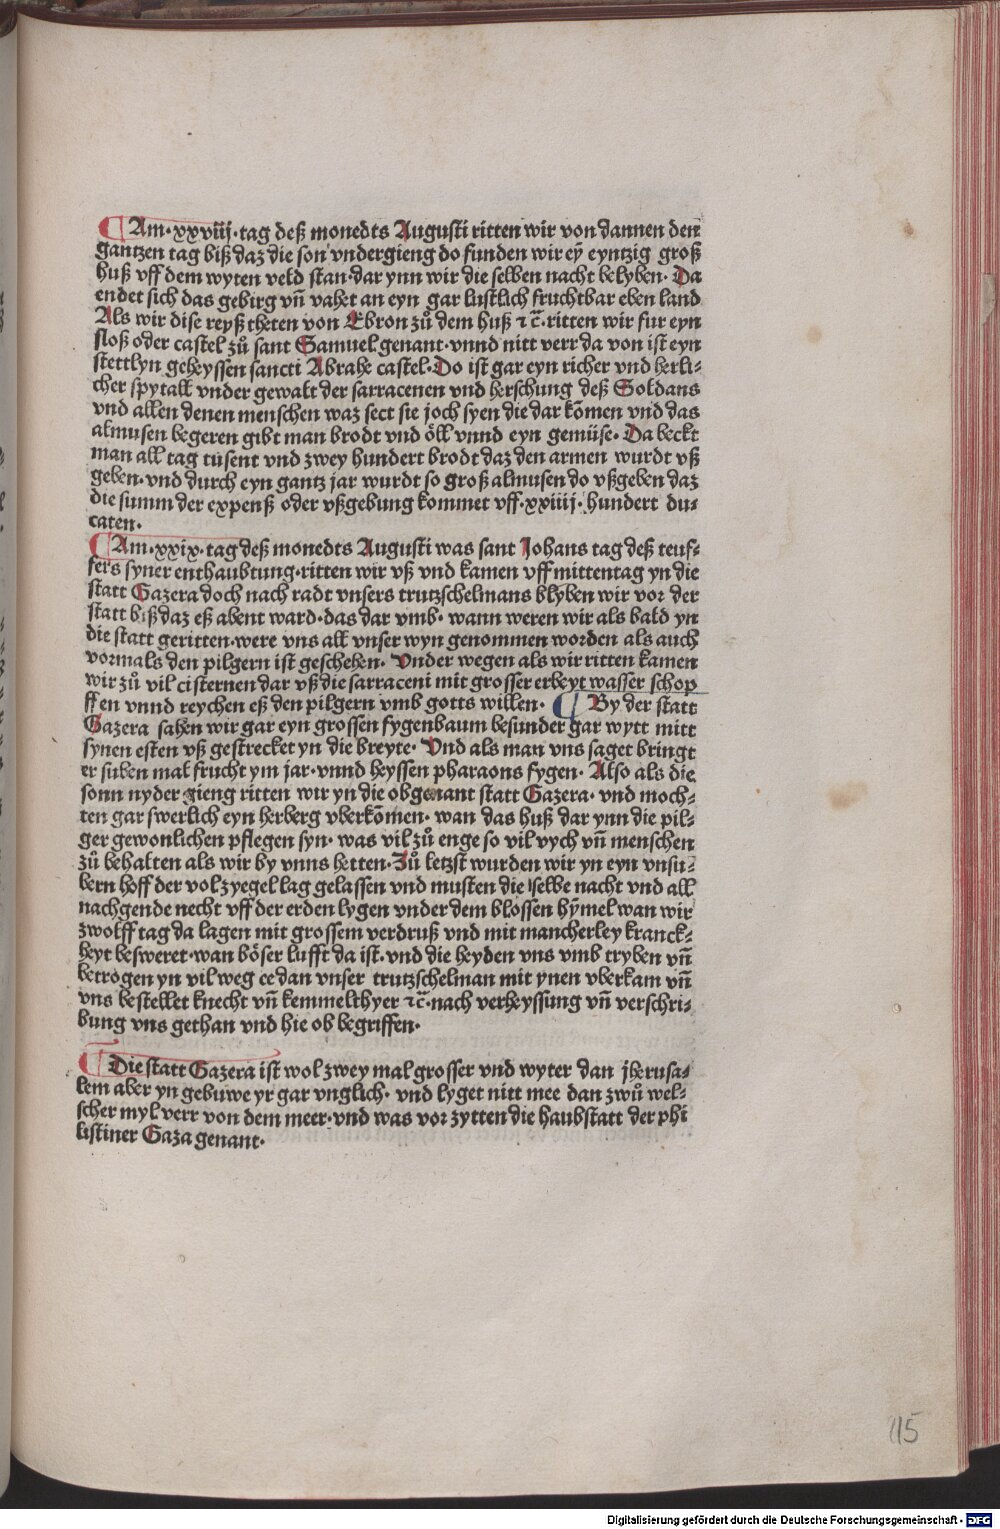 Am·xxviij·tag deß monedts Augusti ritten wir von dannen den
gantzen tag biß daz die son vndergieng do funden wir eÿ eyntzig groß
huß vff dem wyten veld stan·dar ynn wir die selben nacht belyben· Da
endet sich das gebirg vñ vahet an eyn gar lustlich fruchtbar eben land
Als wir dise reyß theten von Ebron zů dem huß ⁊ c̄·ritten wir fur eyn
sloß oder castel zů sant Samuel genant·vnnd nitt verr da von ist eyn
stettlyn geheyssen sancti Abrahe castel·Do ist gar eyn richer vnd herli⸗
cher spytall vnder gewalt der sarracenen vnd herschung deß Soldans
vnd allen denen menschen waz sect sie joch syen die dar kōmen vnd das
almusen begeren gibt man brodt vnd öll vnnd eyn gemüse· Da beckt
man all tag tusent vnd zwey hundert brodt daz den armen wurdt vß
geben·vnd durch eyn gantz jar wurdt so groß almusen do vßgeben daz
die summ der expenß oder vßgebung kommet vff·xxiiij·hundert du⸗
caten·
Am·xxix·tag deß monedts Augusti was sant Johans tag deß teuf⸗
fers syner enthaubtung·ritten wir vß vnd kamen vff mittentag yn die
statt Gazera doch nach radt vnsers trutzschelmans blyben wir vor der
statt biß daz eß abent ward·das dar vmb· wann weren wir als bald yn
die statt geritten·were vns all vnser wyn genommen worden als auch
vormals den pilgern ist geschehen· Vnder wegen als wir ritten kamen
wir zů vil cisternen dar vß die sarraceni mit grosser erbeyt wasser schop
ffen vnnd reychen eß den pilgern vmb gotts willen· By der statt
Gazera sahen wir gar eyn grossen fygenbaum besunder gar wytt mitt
synen esten vß gestrecket yn die breyte· Vnd als man vns saget bringt
er suben mal frucht ym jar·vnnd heyssen pharaons fygen· Also als die
sonn nyder gieng ritten wir yn die obgenant statt Gazera· vnd moch⸗
ten gar swerlich eyn herberg vberkōmen· wan das huß dar ynn die pil⸗
ger gewonlichen pflegen syn· was vil zů enge so vil vych vñ menschen
zů behalten als wir by vnns hetten·Zů letzst wurden wir yn eyn vnsu⸗
bern hoff der vol zyegel lag gelassen vnd musten die selbe nacht vnd all
nachgende necht vff der erden lygen vnder dem blossen hȳmel wan wir
zwolff tag da lagen mit grossem verdruß vnd mit mancherley kranck⸗
heyt besweret·wan böser lufft da ist·vnd die heyden vns vmb tryben vñ
betrogen yn vil weg ee dan vnser trutzschelman mit ynen vberkam vñ
vns bestellet knecht vñ kemmelthyer ⁊ c̄·nach verheyssung vñ verschri⸗
bung vns gethan vnd hie ob begriffen·
Die statt Gazera ist wol zwey mal grosser vnd wyter dan jherusa⸗
lem aber yn gebuwe yr gar vnglich· vnd lyget nitt mee dan zwů wel⸗
scher myl verr von dem meer·vnd was vor zytten die haubstatt der phi
listiner Gaza genant·
115
Digitalisierung gefördert durch die Deutsche Forschungsgemeinschaft - DFG